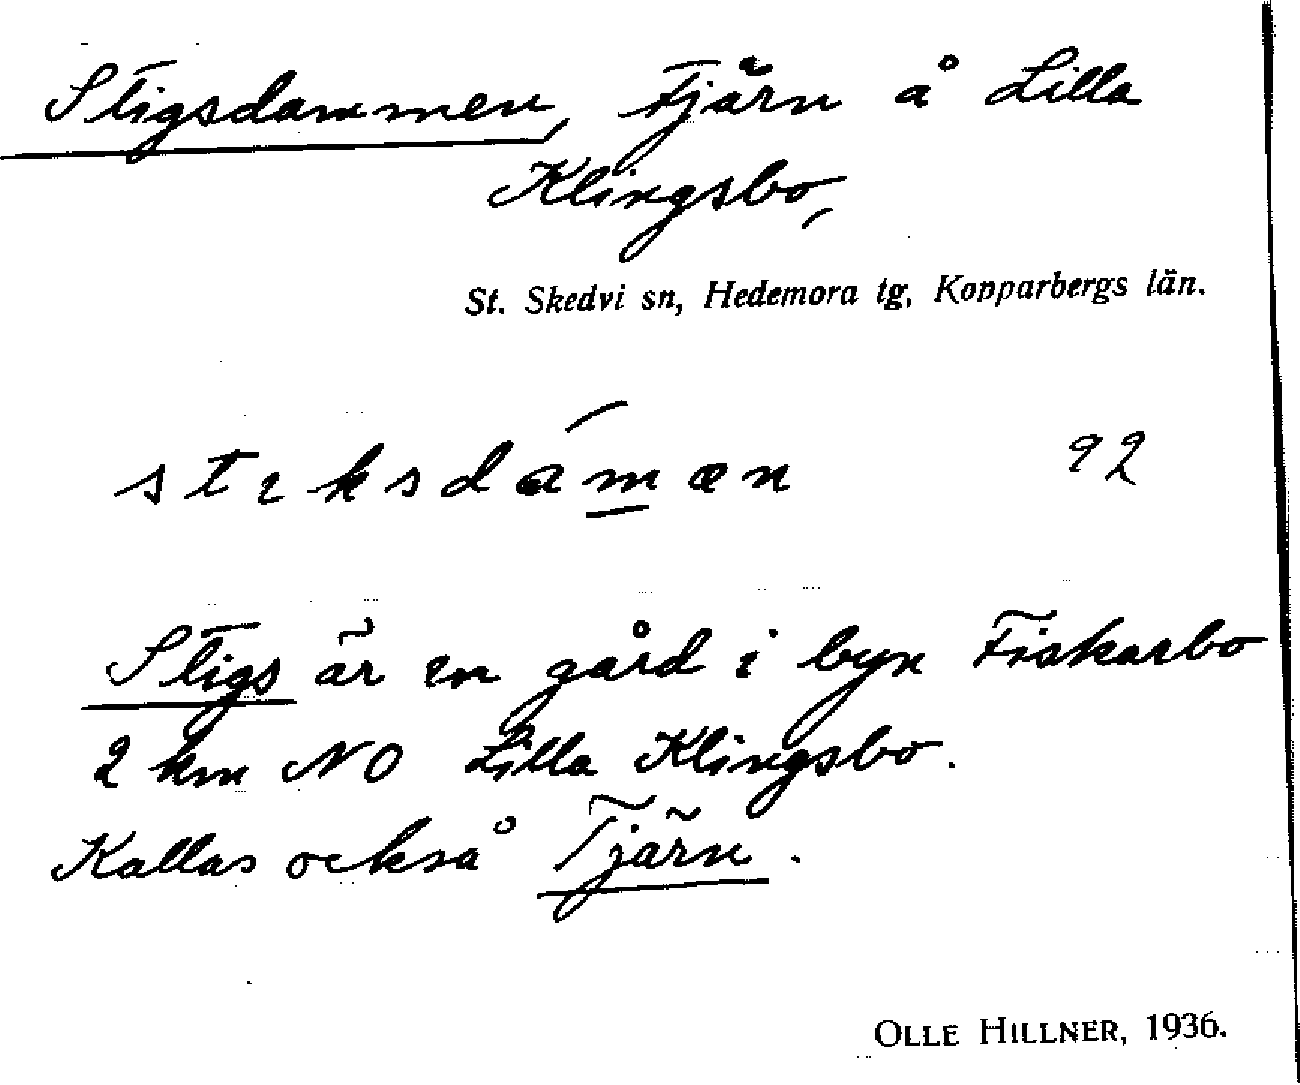 Stigsdammen, Tjärn å Lilla
Klingsbo,
St. Skedvi sn, Hedemora tg, Kopparbergs län.
stɩksdámæn 92
Stigs är en gård i byn Fiskarbo
2 km NO Lilla Klingsbo.
Kallas också Tjärn.
OLLE HILLNER, 1936.